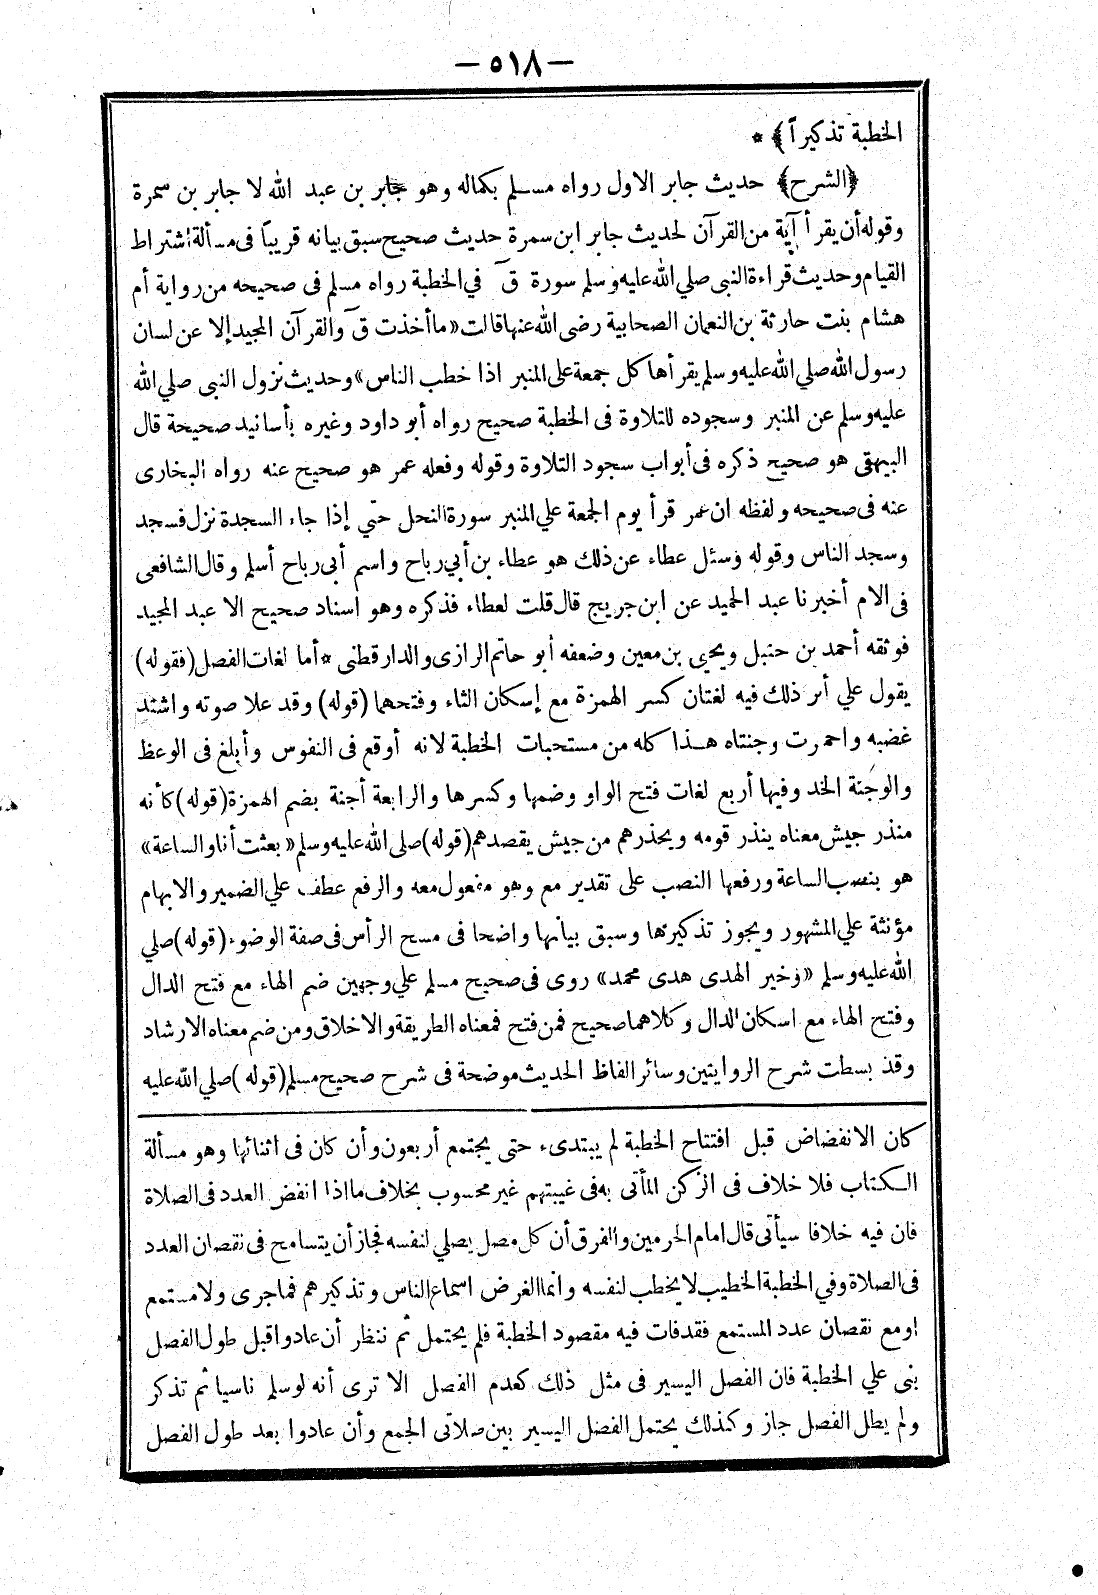 — ٥١٨ —
الخطبة تذكيراً﴾ *
﴿الشرح﴾ حديث جابر الاول رواه مسلم بكماله وهو جابر بن عبد الله لا جابر بن سمرة
وقوله أن يقرأ آية من القرآن لحديث جابر ابن سمرة حديث صحيح سبق بيانه قريباً فى مسألة اشتراط
القيام وحديث قراءة النبى صلي الله عليه وسلم سورة قٓ في الخطبة رواه مسلم فى صحيحه من رواية أم
هشام بنت حارثة بن النعمان الصحابية رضى الله عنها قالت «ما أخذت قٓ والقرآن المجيد إلا عن لسان
رسول الله صلي الله عليه وسلم يقرأها كل جمعة على المنبر اذا خطب الناس» وحديث نزول النبى صلي الله
عليه وسلم عن المنبر وسجوده للتلاوة فى الخطبة صحيح رواه أبو داود وغيره بأسانيد صحيحة قال
البيهقى هو صحيح ذكره فى أبواب سجود التلاوة وقوله وفعله عمر هو صحيح عنه رواه البخارى
عنه فى صحيحه ولفظه ان عمر قرأ يوم الجمعة علي المنبر سورة النحل حتي إذا جاء السجدة نزل فسجد
وسجد الناس وقوله وسئل عطاء عن ذلك هو عطاء بن أبي رباح واسم أبى رباح أسلم وقال الشافعى
فى الام أخبرنا عبد الحميد عن ابن جريج قال قلت لعطاء فذكره وهو اسناد صحيح الا عبد المجيد
فوثقه أحمد بن حنبل ويحيي بن معين وضعفه أبو حاتم الرازى والدارقطنى * أما لغات الفصل (فقوله)
يقول علي أثر ذلك فيه لغتان كسر الهمزة مع إسكان الثاء وفتحهما (قوله) وقد علا صوته واشتد
غضبه واحمرت وجنتاه هذا كله من مستحبات الخطبة لانه أوقع فى النفوس وأبلغ فى الوعظ
والوجنة الخد وفيها أربع لغات فتح الواو وضمها وكسرها والرابعة أجنة بضم الهمزة (قوله) كأنه
منذر جيش معناه ينذر قومه ويحذرهم من جيش يقصدهم (قوله) صلى الله عليه وسلم «بعثت أنا والساعة»
هو بنصب الساعة ورفعها النصب على تقدير مع وهو مفعول معه والرفع عطف علي الضمير والابهام
مؤنثة علي المشهور ويجوز تذكيرها وسبق بيانها واضحا فى مسح الرأس فى صفة الوضوء (قوله) صلي
الله عليه وسلم «وخير الهدى هدى محمد» روى فى صحيح مسلم علي وجهين ضم الهاء مع فتح الدال
وفتح الهاء مع اسكان الدال وكلاهما صحيح فمن فتح فمعناه الطريقة والاخلاق ومن ضم معناه الارشاد
وقد بسطت شرح الروايتين وسائر الفاظ الحديث موضحة فى شرح صحيح مسلم (قوله) صلي الله عليه
كان الانفضاض قبل افتتاح الخطبة لم يبتدىء حتى يجتمع أربعون وأن كان فى اثنائها وهو مسألة
الكتاب فلا خلاف فى الركن المأتى به فى غيبتهم غير محسوب بخلاف ما اذا انفض العدد فى الصلاة
فان فيه خلافا سيأتى قال امام الحرمين والفرق أن كل مصل يصلي لنفسه فجاز أن يتسامح فى نقصان العدد
فى الصلاة وفي الخطبة الخطيب لا يخطب لنفسه وانما الغرض اسماع الناس وتذكيرهم فما جرى ولا مستمع
او مع نقصان عدد المستمع فقد فات فيه مقصود الخطبة فلم يحتمل ثم ننظر أن عادوا قبل طول الفصل
بنى علي الخطبة فان الفصل اليسير فى مثل ذلك كعدم الفصل الا ترى أنه لو سلم ناسيا ثم تذكر
ولم يطل الفصل جاز وكذلك يحتمل الفضل اليسير بين صلاتى الجمع وأن عادوا بعد طول الفصل